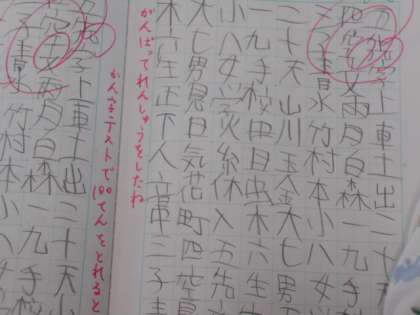 五先字上車土出二十天
四空文雨月白森一九手
子青水竹村本小八女
二十天山川玉金大七男
一九手校田目虫木六生
小八女学火糸休入五先
大七男見日気花町四空
木六生正下人立草二子
がんばってれんしゅうをしたね
かん字テストで100てんをとれると
字上車土出二十天小
空文雨月白森一九手校
竹村本小八女